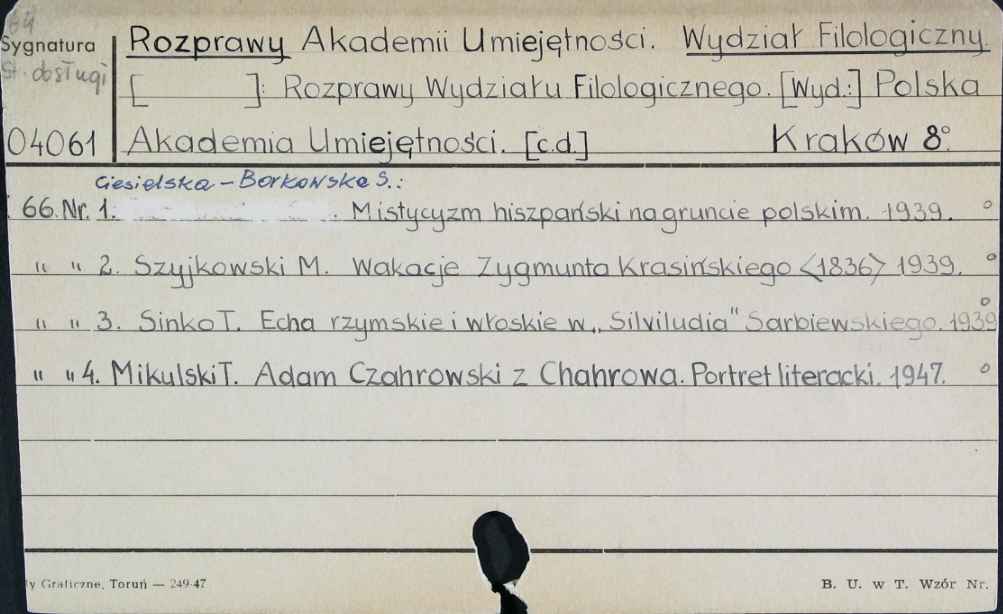 64
Sygnatura Rozprawy Akademii Umiejętności. Wydział Filologiczny
dosługi [ ]: Rozprawy Wydziału Filologicznego. [Wyd.:] Polska
04061 Akademia Umiejętności. [c.d.] Kraków 8°.
Ciesielska-Borkowska S.:
66. Nr. 1. Mistycyzm hiszpański na gruncie polskim. 1939. °
" " 2. Szyjkowski M. Wakacje Zygmunta Krasińskiego <1836> 1939. °
" " 3. Sinko T. Echa rzymskie i włoskie w „Silviludia" Sarbiewskiego. 1939 °
" " 4. Mikulski T. Adam Czahrowski z Chahrowa. Portret literacki. 1947. °
y Graficzne, Toruń — 249-47 B. U. w T. Wzór Nr.